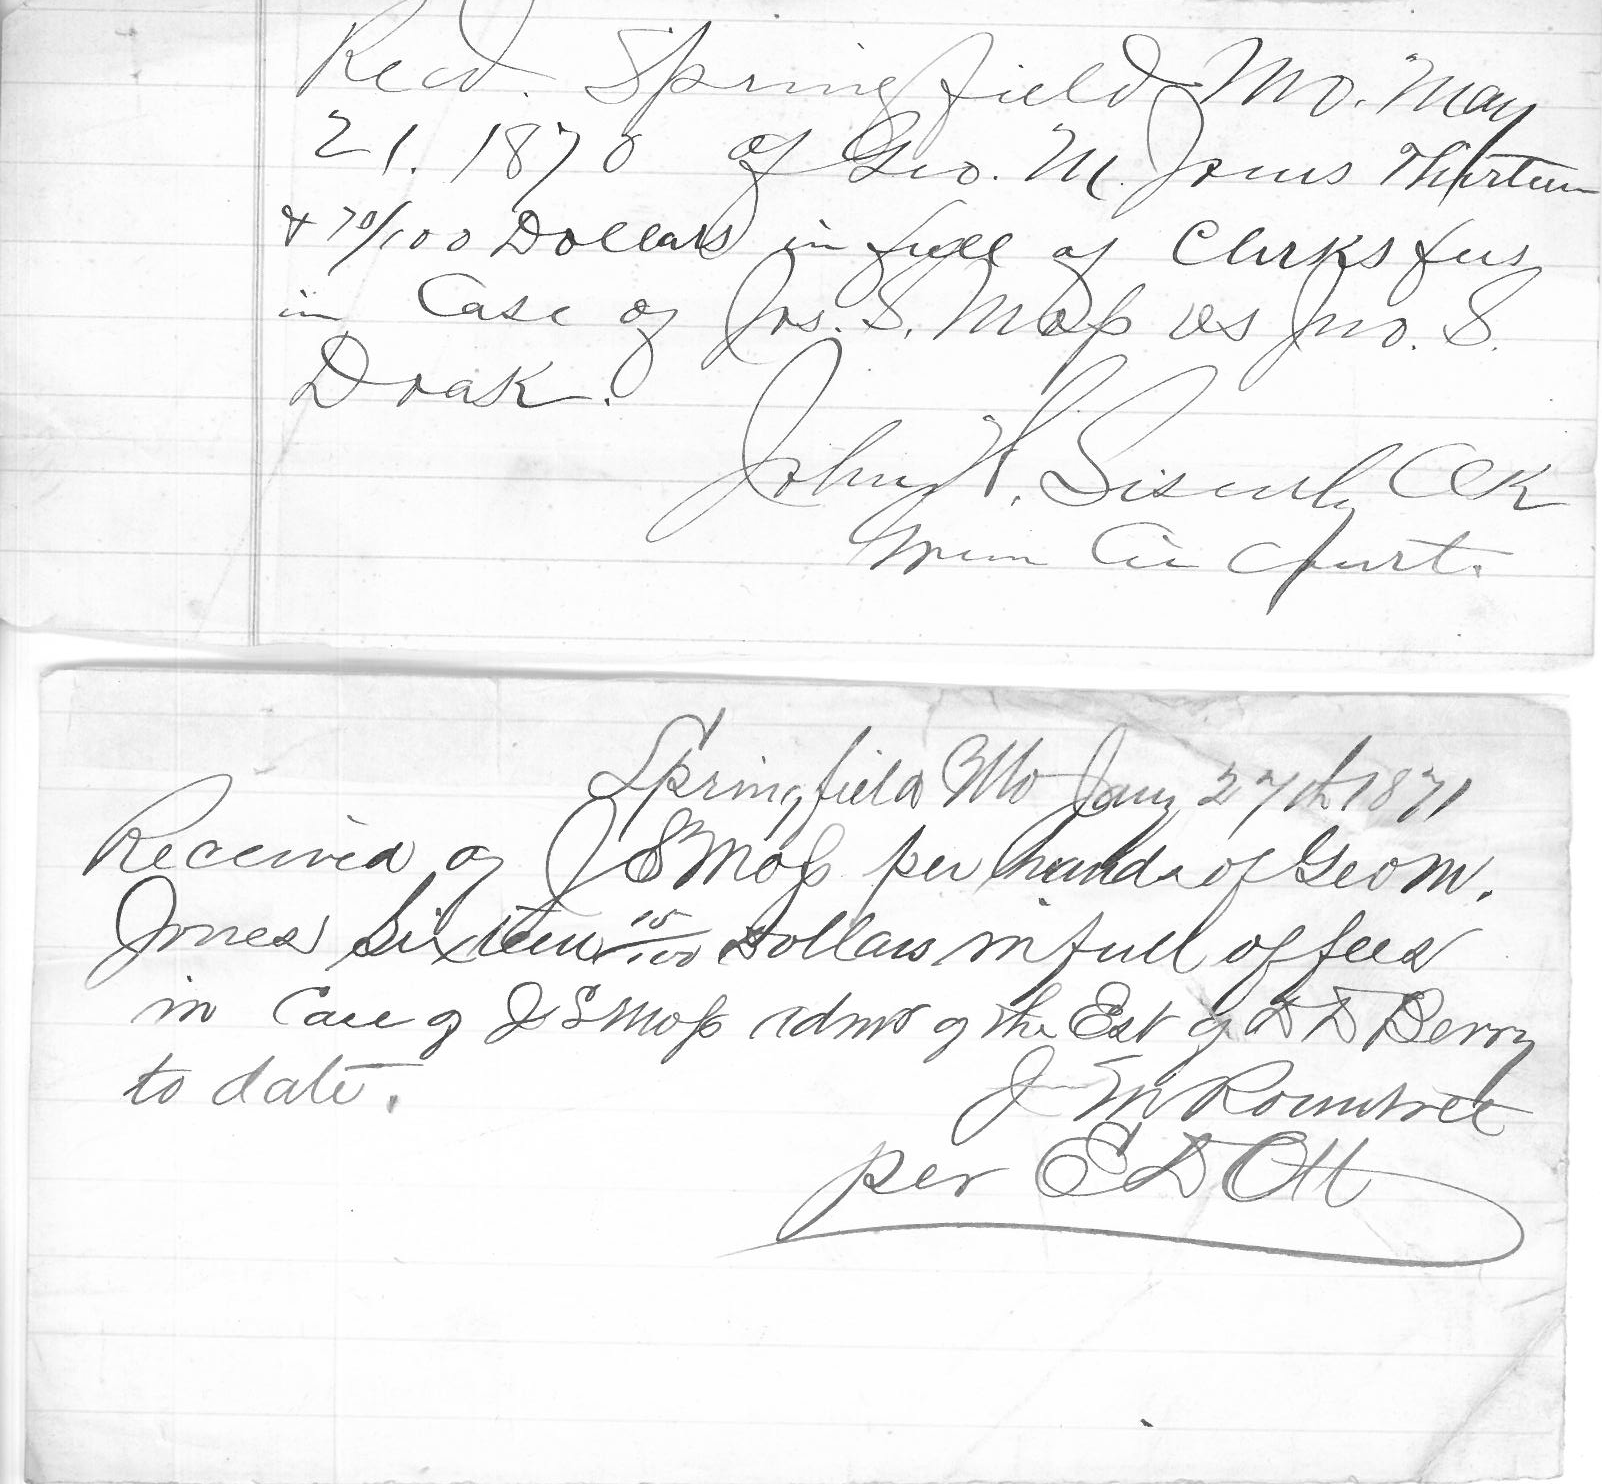 Recd. Springfield Mo. May
21. 1870 of Geo. M. Jones Thirteen
& 70/100 Dollars in full of Clerks fees
in Case of Jos. S. Moss vs Jno. S.
Doak.
John H. Clk
Court.
Springfield Mo Jany 27th 1871
Received of J S Moss per hands of Geo M.
Jones Sixteen 15/100 Dollars in full of fees
in Case of J S Moss Admr of the Est of D D Berry
to date.
J M Rountree
per E D Ott